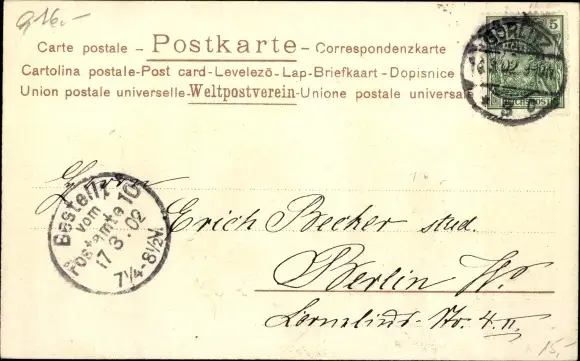 9.16.-
Carte postale – Postkarte – Correspondenzkarte
Cartolina postale-Post card-Levelezö-Lap-Briefkaart-Dopisnice
Union postale universelle-Weltpostverein-Unione postale universale
5
REICHSPOST
GÖRLITZ
Herrn
Bestellt
vom
Postamte 10
17 3. 02
7¼-8½V.
Erich Becker stud.
Berlin W.
Cornelius-Str. 4. II.
15,-